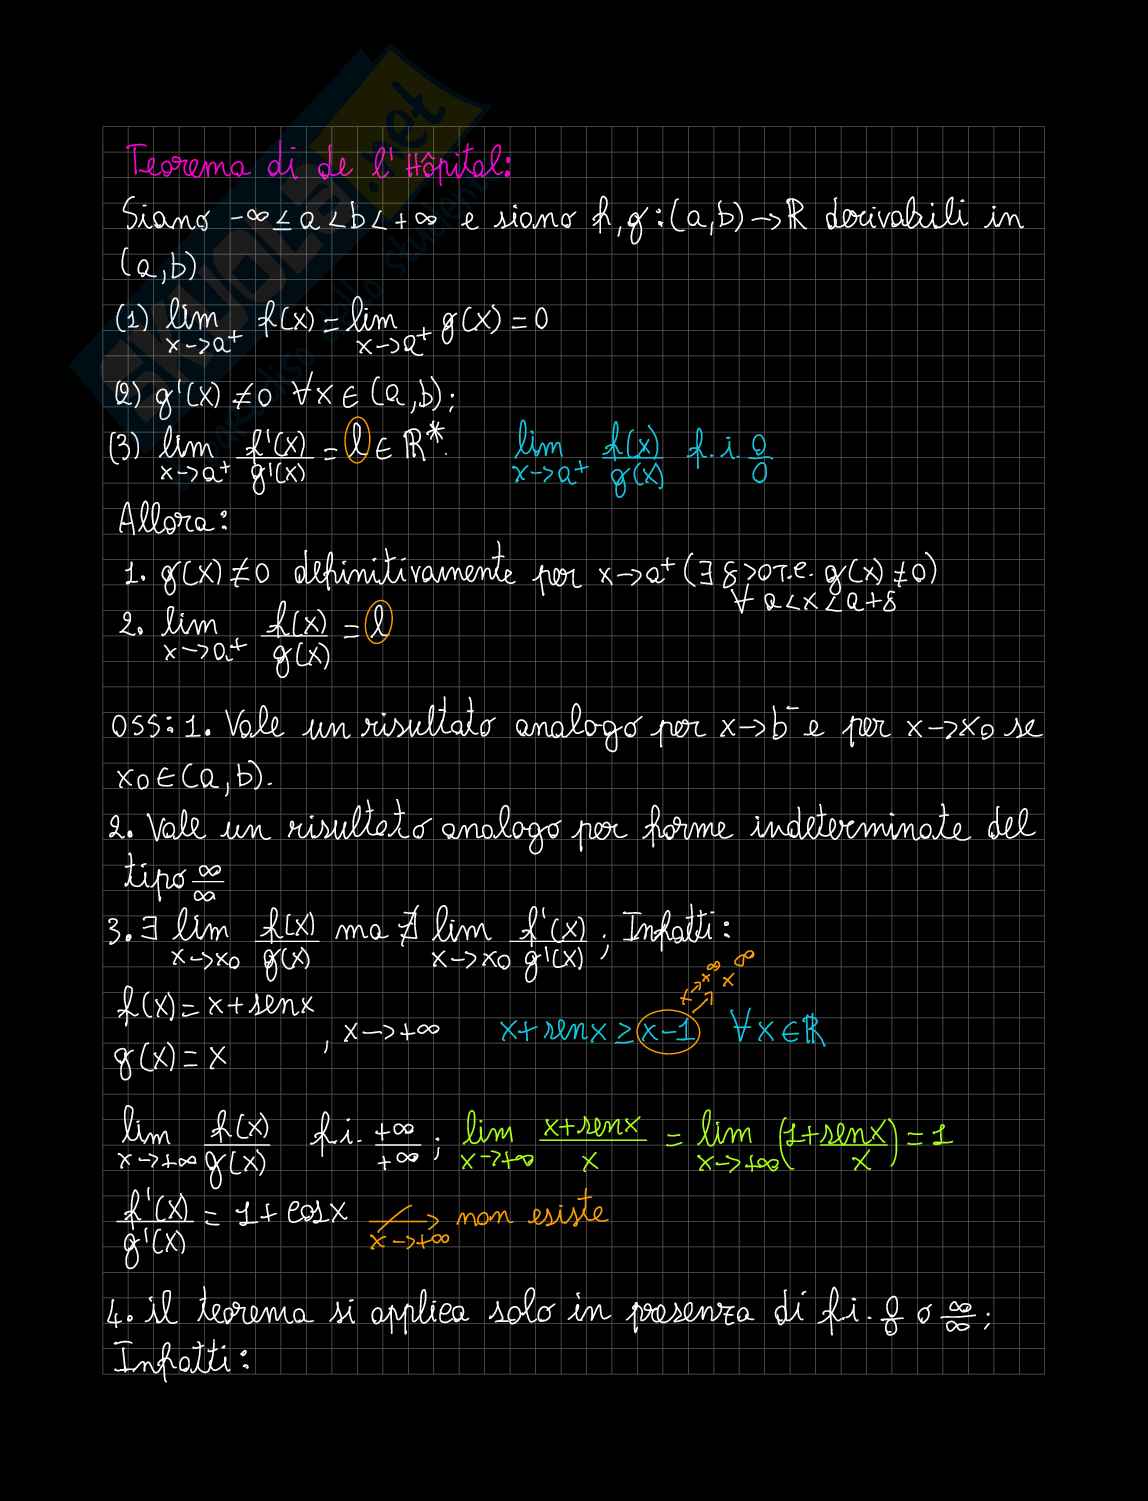 Teorema di de l'Hôpital:
Siano -∞ ≤ a < b < +∞ e siano f, g : (a, b) → ℝ derivabili in
(a, b)
(1) lim x→a⁺ f(x) = lim x→a⁺ g(x) = 0
(2) g'(x) ≠ 0 ∀x ∈ (a, b);
(3) lim x→a⁺ f'(x)/g'(x) = l ∈ ℝ*. lim x→a⁺ f(x)/g(x) f.i. 0/0
Allora:
1. g(x) ≠ 0 definitivamente per x→a⁺ (∃ δ>0 T.c. g(x) ≠ 0)
∀ a<x<a+δ
2. lim x→a⁺ f(x)/g(x) = l
OSS: 1. Vale un risultato analogo per x→b⁻ e per x→x₀ se
x₀ ∈ (a, b).
2. Vale un risultato analogo per forme indeterminate del
tipo ∞/∞
3. ∃ lim x→x₀ f(x)/g(x) ma ∄ lim x→x₀ f'(x)/g'(x) ; Infatti:
f(x) = x + senx
g(x) = x , x→+∞ x + senx ≥ x-1 ∀x ∈ ℝ
lim x→+∞ f(x)/g(x) f.i. +∞/+∞ ; lim x→+∞ x+senx/x = lim x→+∞ (1+senx/x) = 1
f'(x)/g'(x) = 1 + cosx x→+∞ non esiste
4. il teorema si applica solo in presenza di f.i. 0/0 o ∞/∞ ;
Infatti:
SKUOLA.net